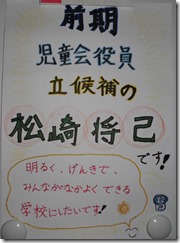 前期
児童会役員
立候補の
松崎将己
です!
明るく、げんきで、
みんなかなかよくできる
学校にしたいです!